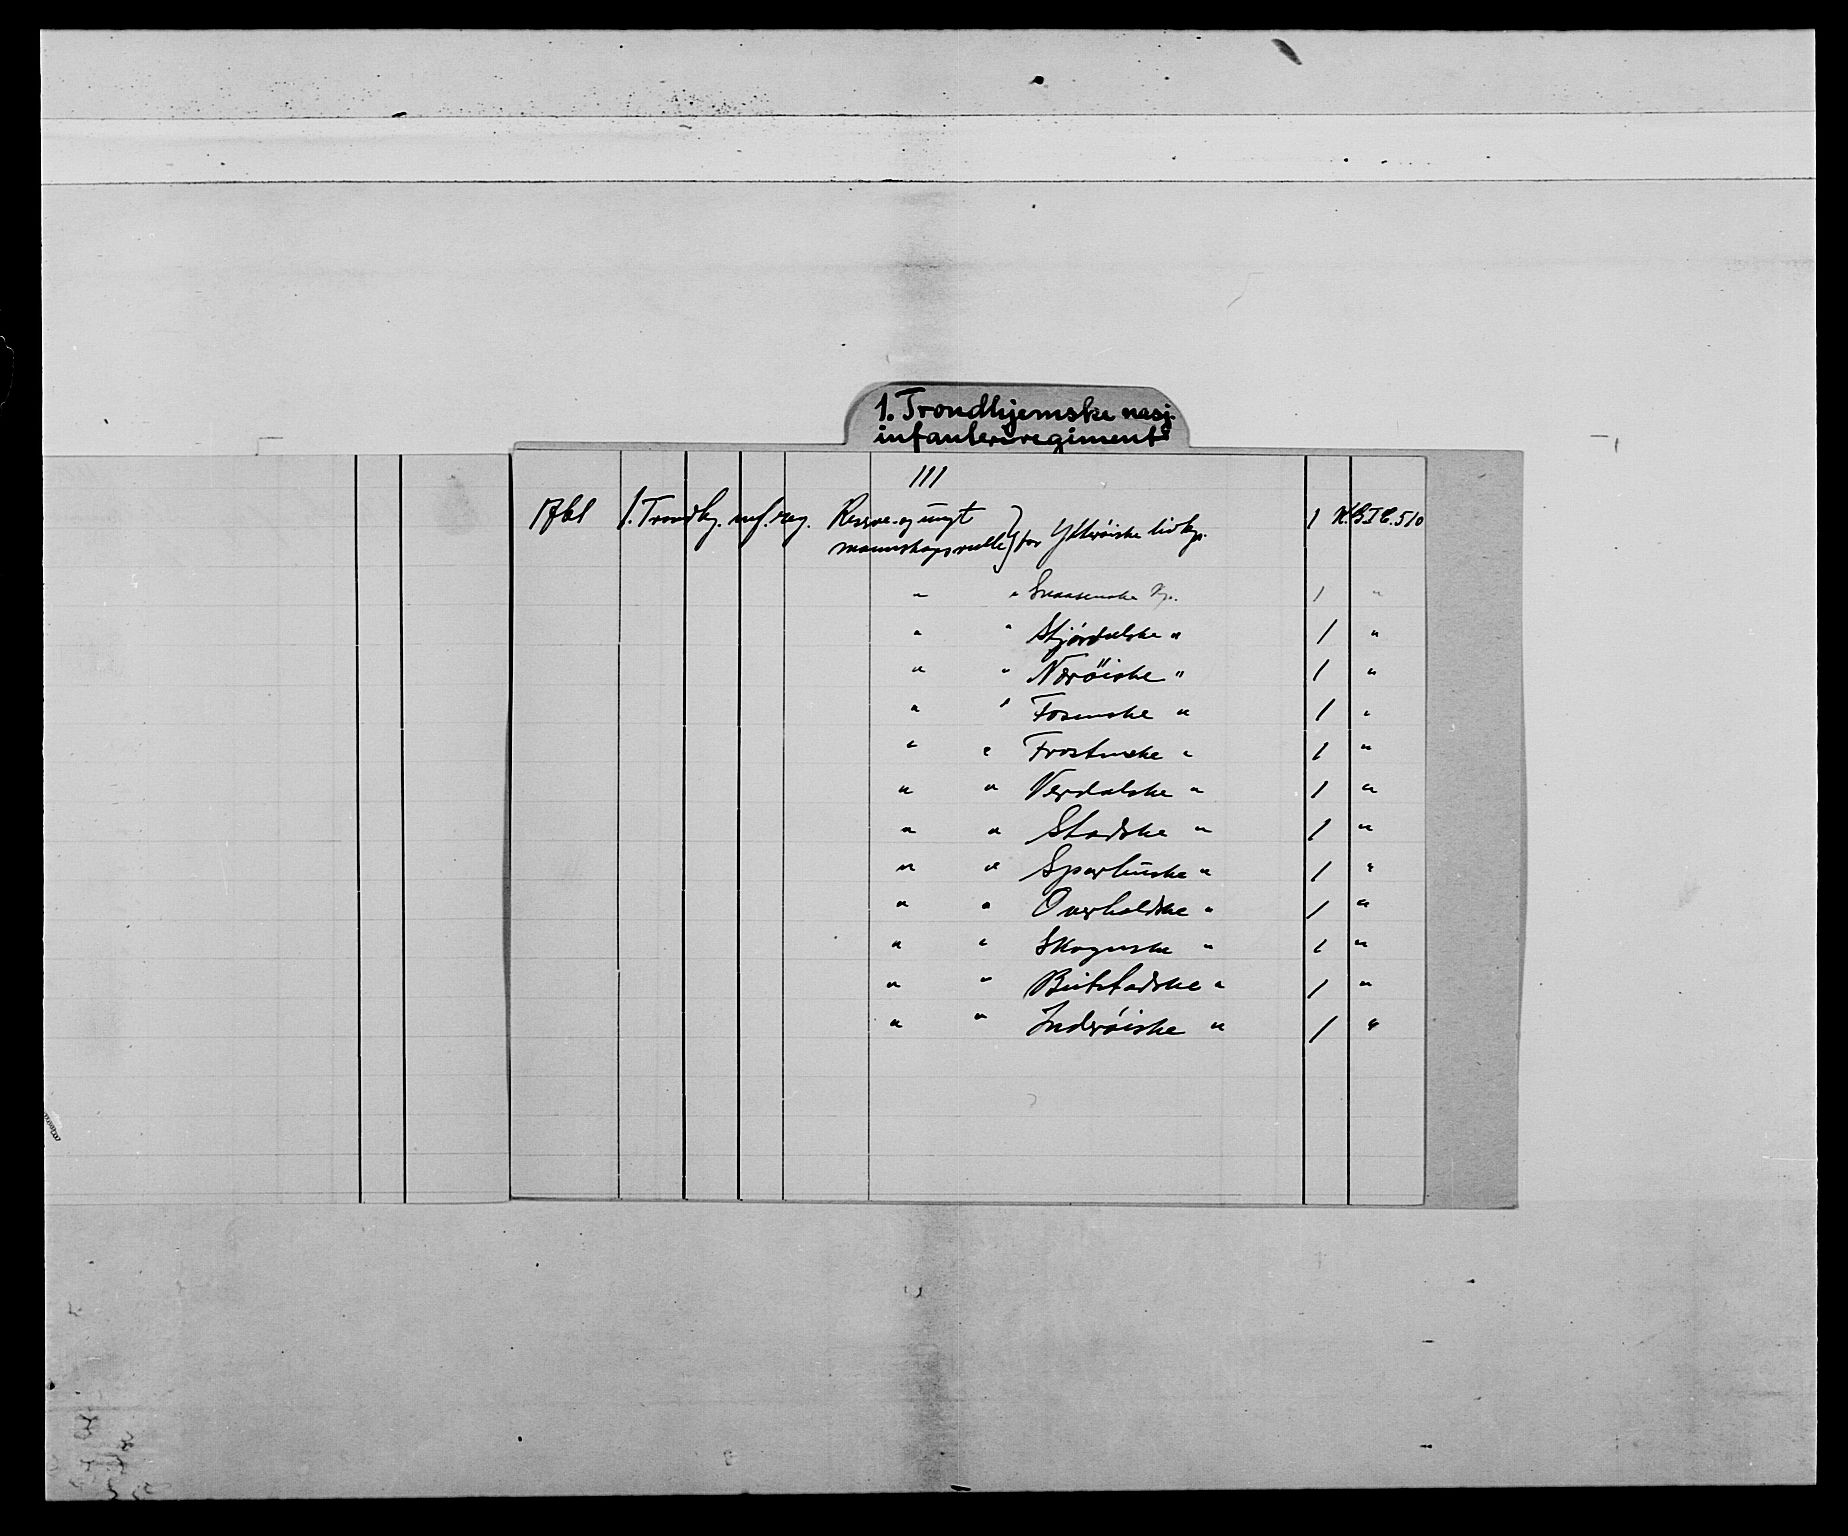 1. Trondhjemske nasj.
infanteriregiment
111
1761 1. Trondhj. inf. reg. Reserve- og ungt
mannskapsrulle } for Ytterøiske livkp. 1 K.B.I.C. 510
" " Snaasenske Kp. 1 "
" " Stjørdalske " 1 "
" " Nærøiske " 1 "
" " Fosenske " 1 "
" " Frostenske " 1 "
" " Verdalske " 1 "
" " Stadske " 1 "
" " Sparbuske " 1 "
" " Overhaldske " 1 "
" " Skognske " 1 "
" " Beitstadske " 1 "
" " Inderøiske " 1 "